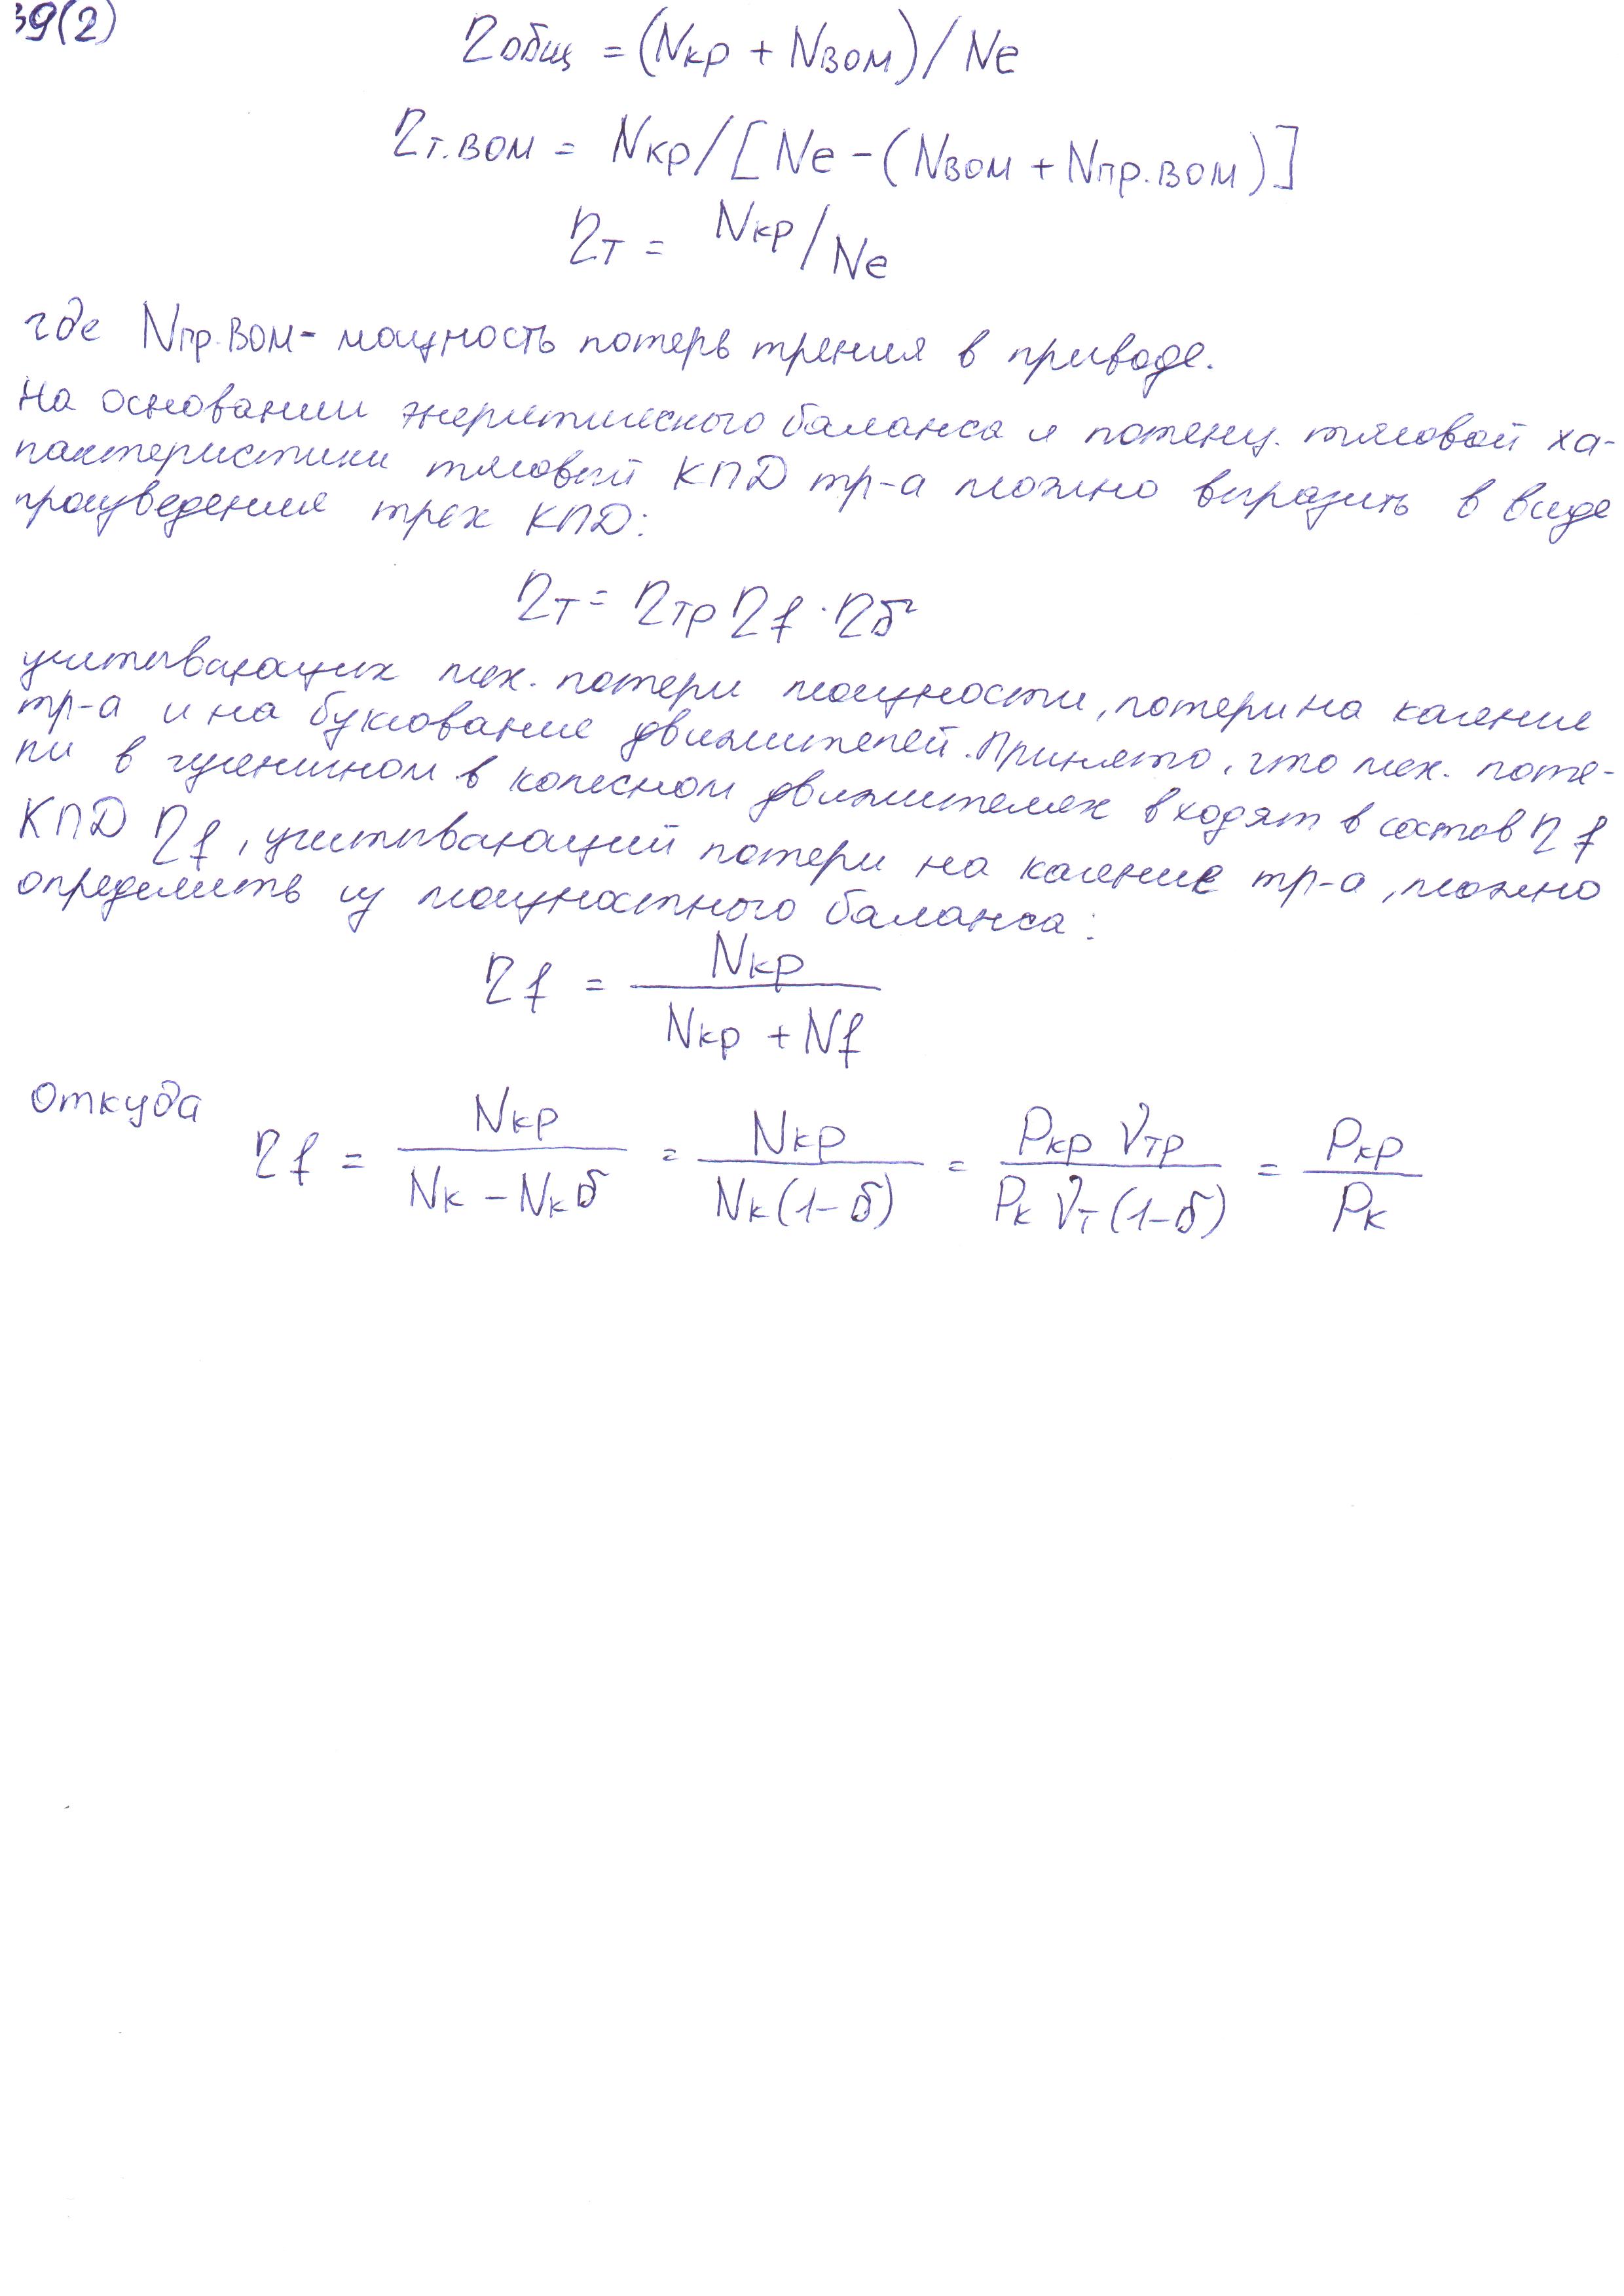 39(2)
ηобщ = (Nкр + Nвом)/Ne
ηт.вом = Nкр/[Ne - (Nвом + Nпр.вом)]
ηт = Nкр/Ne
где Nпр.вом - мощность потерь трения в приводе.
На основании энергетического баланса и потенц. тяговой ха-
рактеристики тяговый КПД тр-а можно выразить в виде
произведения трех КПД:
ηт = ηтр ηf · ηδ
учитывающих мех. потери мощности, потери на качение
тр-а и на буксование движителей. Принято, что мех. поте-
ри в гусеничном в колесном движителях входят в состав ηf
КПД ηf, учитывающий потери на качение тр-а, можно
определить из мощностного баланса:
ηf = Nкр / (Nкр + Nf)
откуда
ηf = Nкр / (Nк - Nкδ) = Nкр / (Nк(1-δ)) = Pкр Vтр / (Pк Vт(1-δ)) = Pкр / Pк